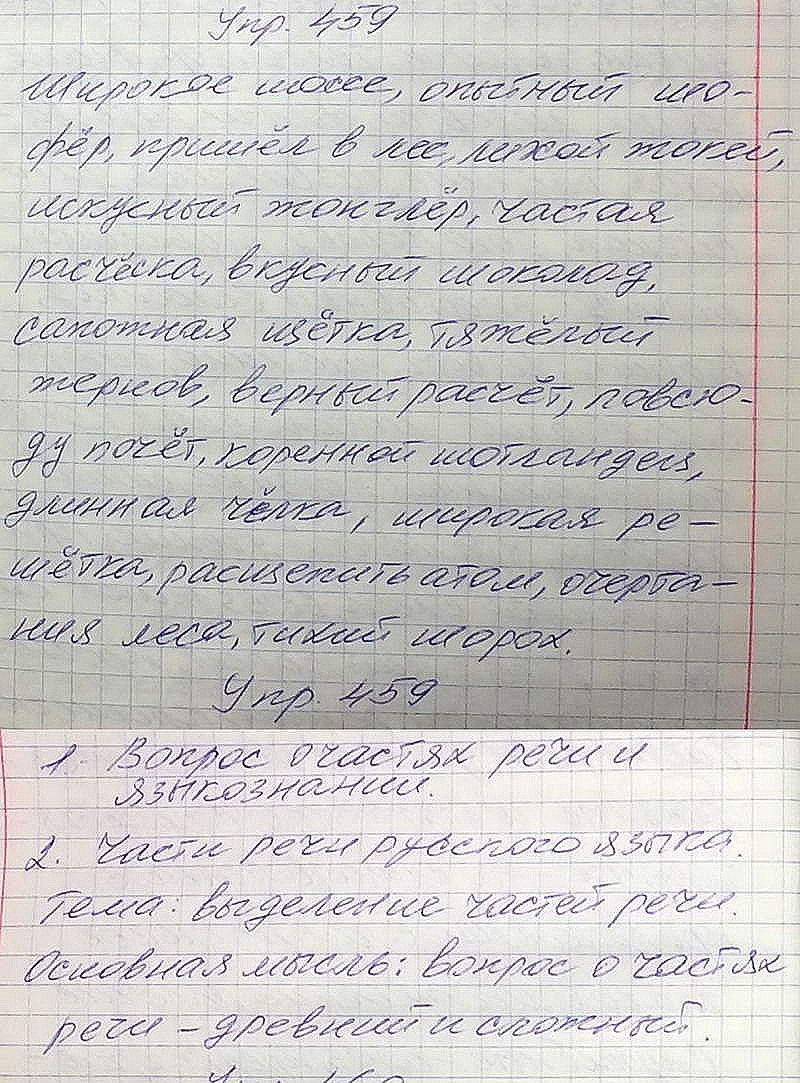 Упр. 459
Широкое шоссе, опытный шо-
фёр, пришёл в лес, лихой жокей,
искусный жонглёр, частая
расчёска, вкусный шоколад,
сапожная щётка, тяжёлый
жернов, верный расчёт, повсю-
ду почёт, коренной шотландец,
длинная чёлка, широкая ре-
шётка, расщепить атом, очерта-
ния леса, тихий шорох.
Упр. 459
1. Вопрос о частях речи и
языкознании.
2. Части речи русского языка.
Тема: выделение частей речи.
Основная мысль: вопрос о частях
речи – древний и сложный.